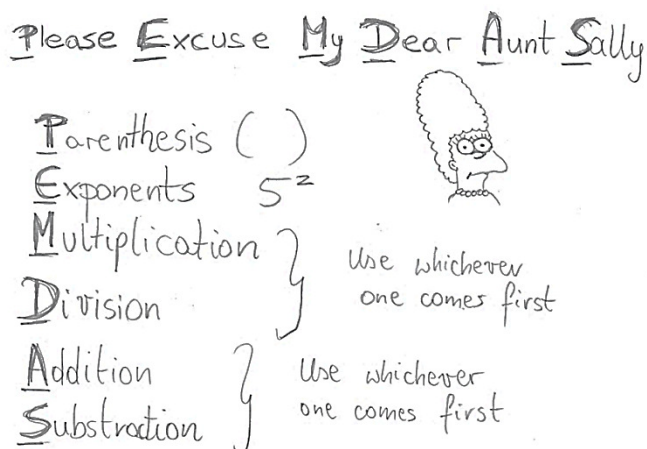 Please Excuse My Dear Aunt Sally
Parenthesis ( )
Exponents 5²
Multiplication
Division
Use whichever
one comes first
Addition
Substraction
Use whichever
one comes first